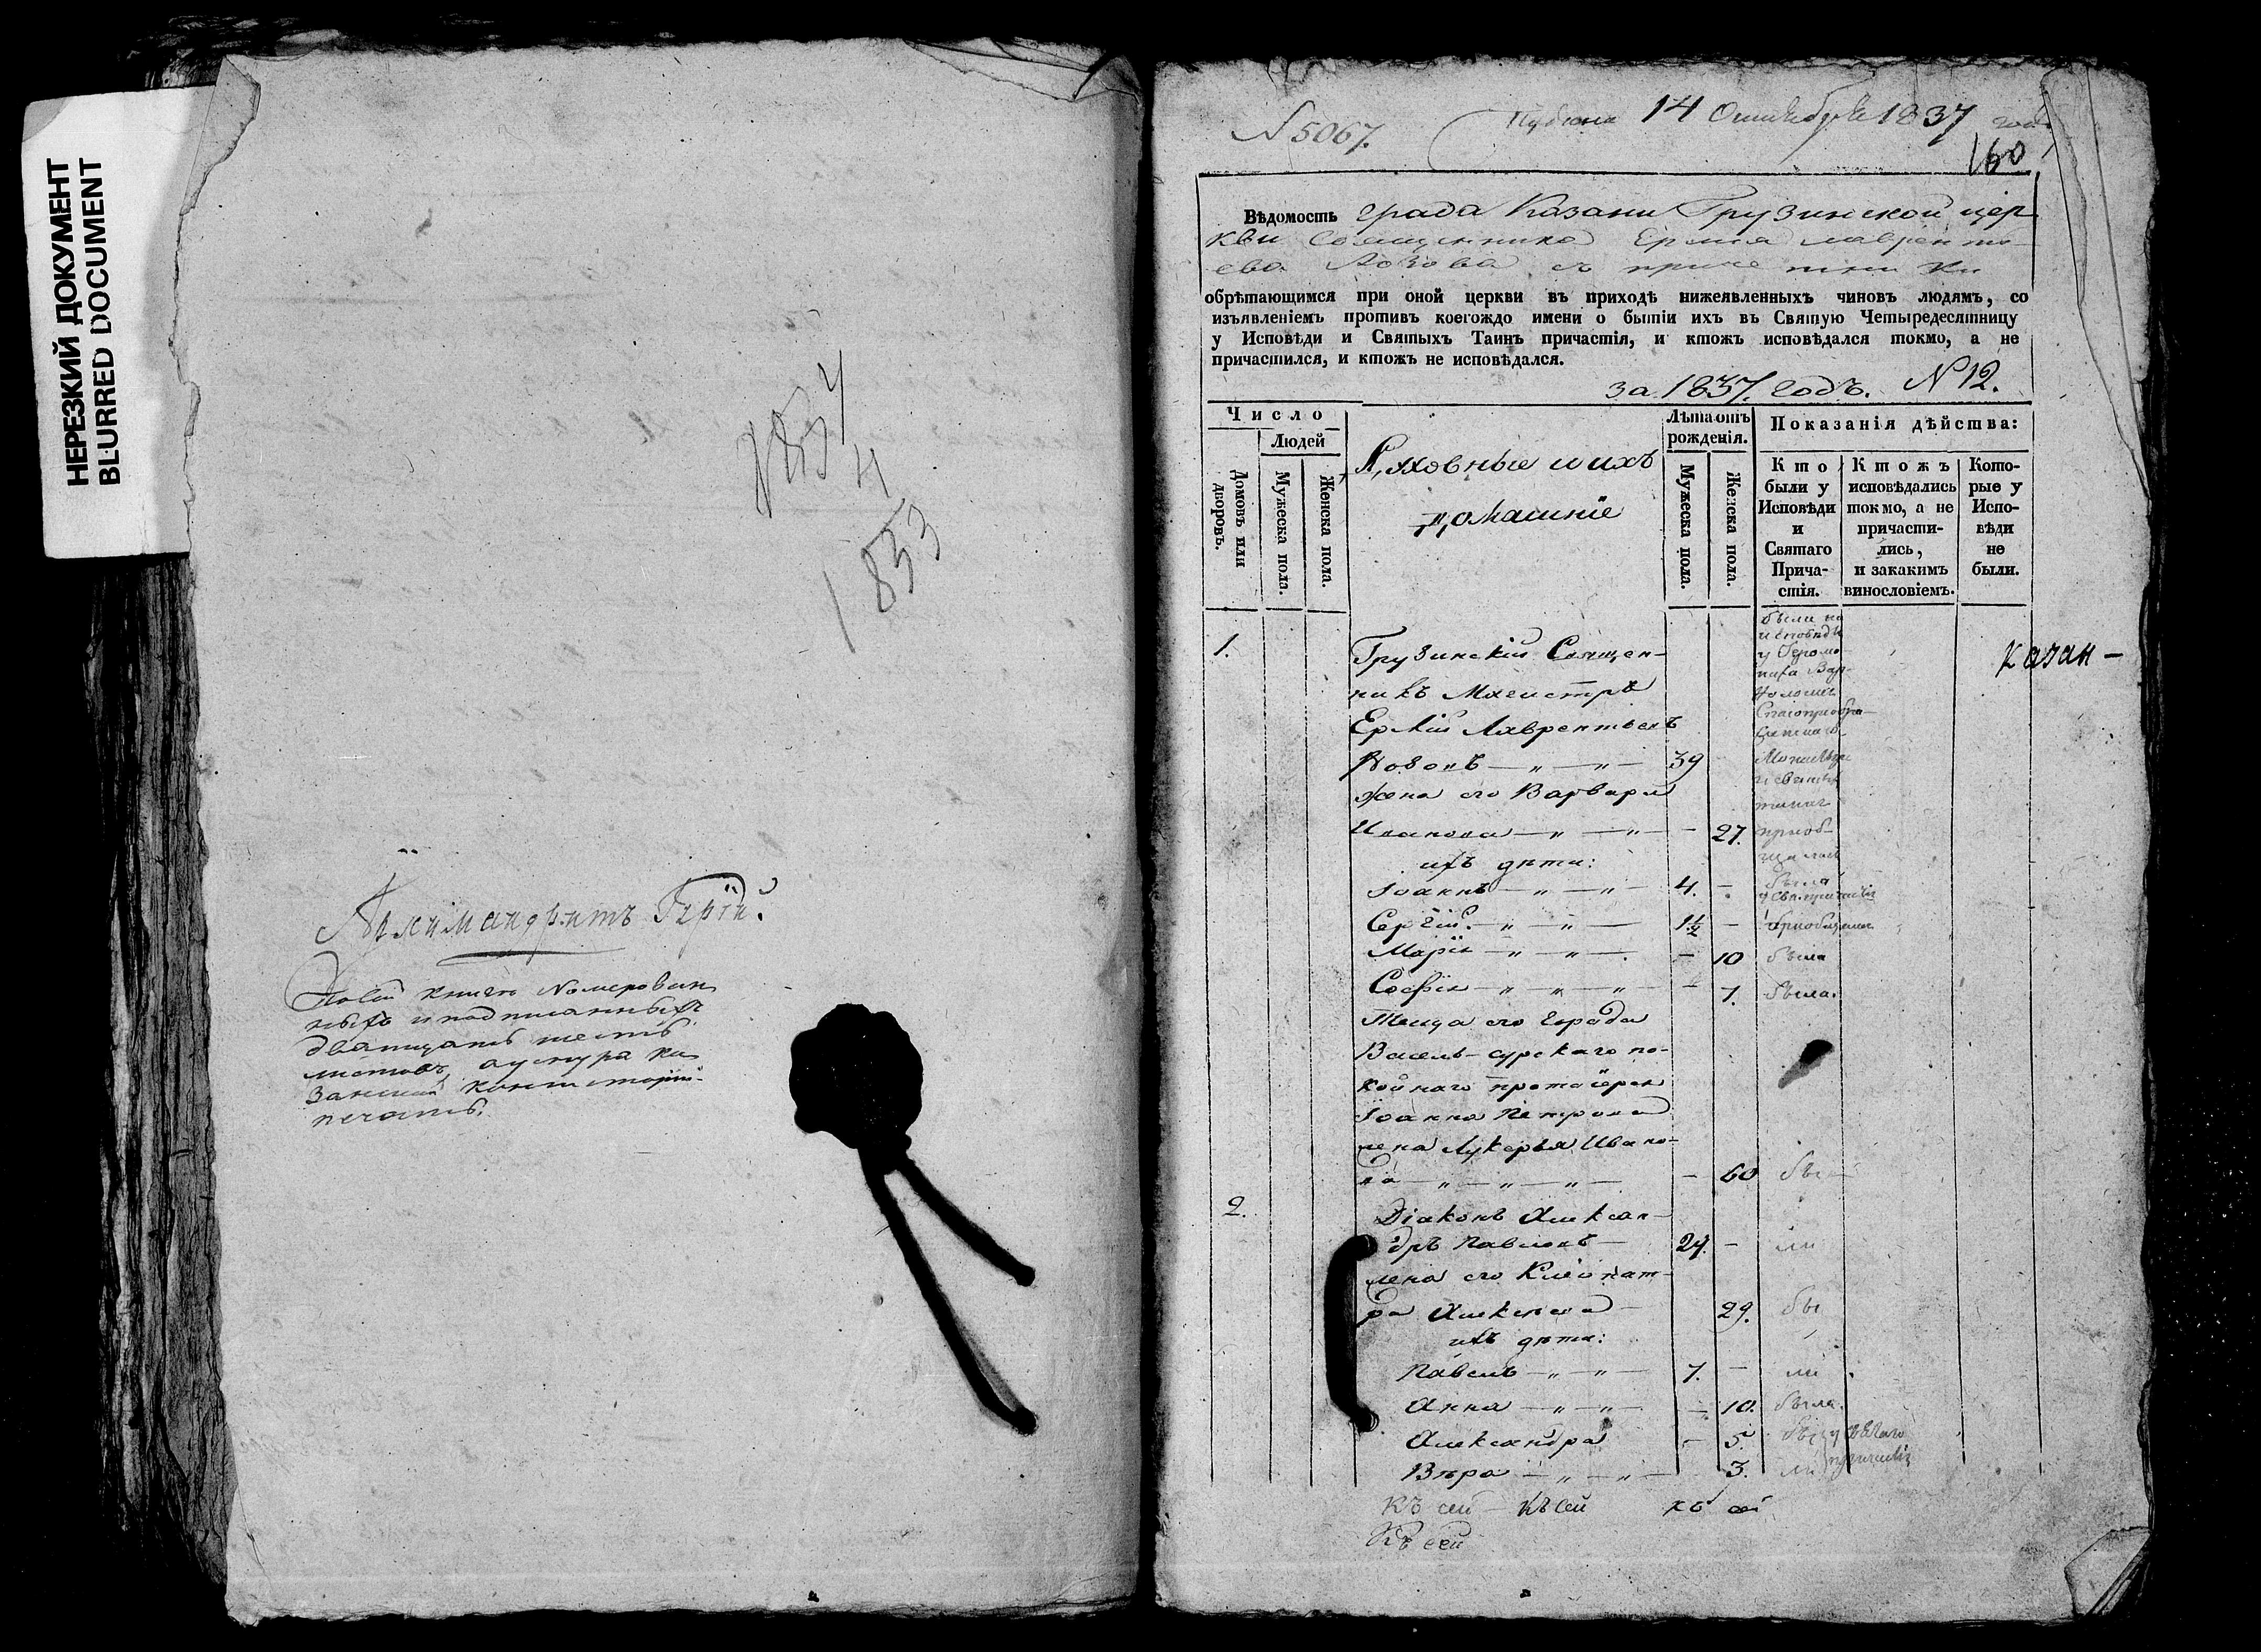 НЕРЕЗКИЙ ДОКУМЕНТ
BLURRED DOCUMENT
1834
1833
Архимандритъ Гурій.
книгѣ Номерован
ныхъ и подписанныхъ
дватцать шесть
листовъ, а у шнура Ка
занской Консисторіи
печать.
N 5067.
14 Октября 1837 года
160
Вѣдомость града Казани Грузинской цер
кви Священника Ермія Лаврентье
ева с причетники
обрѣтающимся при оной церкви въ приходѣ нижеявленныхъ чиновъ людямъ, со
изъявленіемъ противъ коегождо имени о бытіи ихъ въ Святую Четыредесятницу
у Исповѣди и Святыхъ Таинъ причастія, и ктожъ исповѣдался токмо, а не
причастился, и ктожъ не исповѣдался.
за 1837. годъ. N 12.
Число
Людей
Домовъ или дворовъ.
Мужеска пола.
Женска пола.
Духовные и ихъ
домашніе
Лѣта отъ рожденія.
Мужеска пола.
Женска пола.
Показанія дѣйства:
Кто были у Исповѣди и Святаго Прича- стія.
Ктожъ исповѣдались токмо, а не причасти- лись, и закакимъ винословіемъ.
Кото- рые у Испо- вѣди не были.
были на
исповѣди
у Іеромо-
наха
1. Грузинскій Священ-
никъ Магистръ
Ермій Лаврентьевъ
39
Казан-
жена его Варвара
Иванова — „ — „ — - 27. приоб-
ихъ дѣти:
Іоаннъ — „ — „ — 4. - былъ
Сергій. — „ — „ — 1½ -
Марія — „ — „ — - 10 была
Софія — „ — „ — „ - 7. была.
Теща его города
Василь-сурскаго по-
койнаго протоіерея
Іоанна Петрова
жена Лукерья Ивано-
ва — „ — „ — „ — - 60
2. Діаконъ Алексан-
дръ Павловъ — 29. -
жена его Клеопат-
ра Алексѣева — 29. бы
ихъ дѣти:
Павелъ — „ — „ — 7. - лъ
Анна — „ — „ — - 10. была.
Александра - 5.
Вѣра — „ — „ — 3.
Къ сей Къ сей къ сей
Къ сей